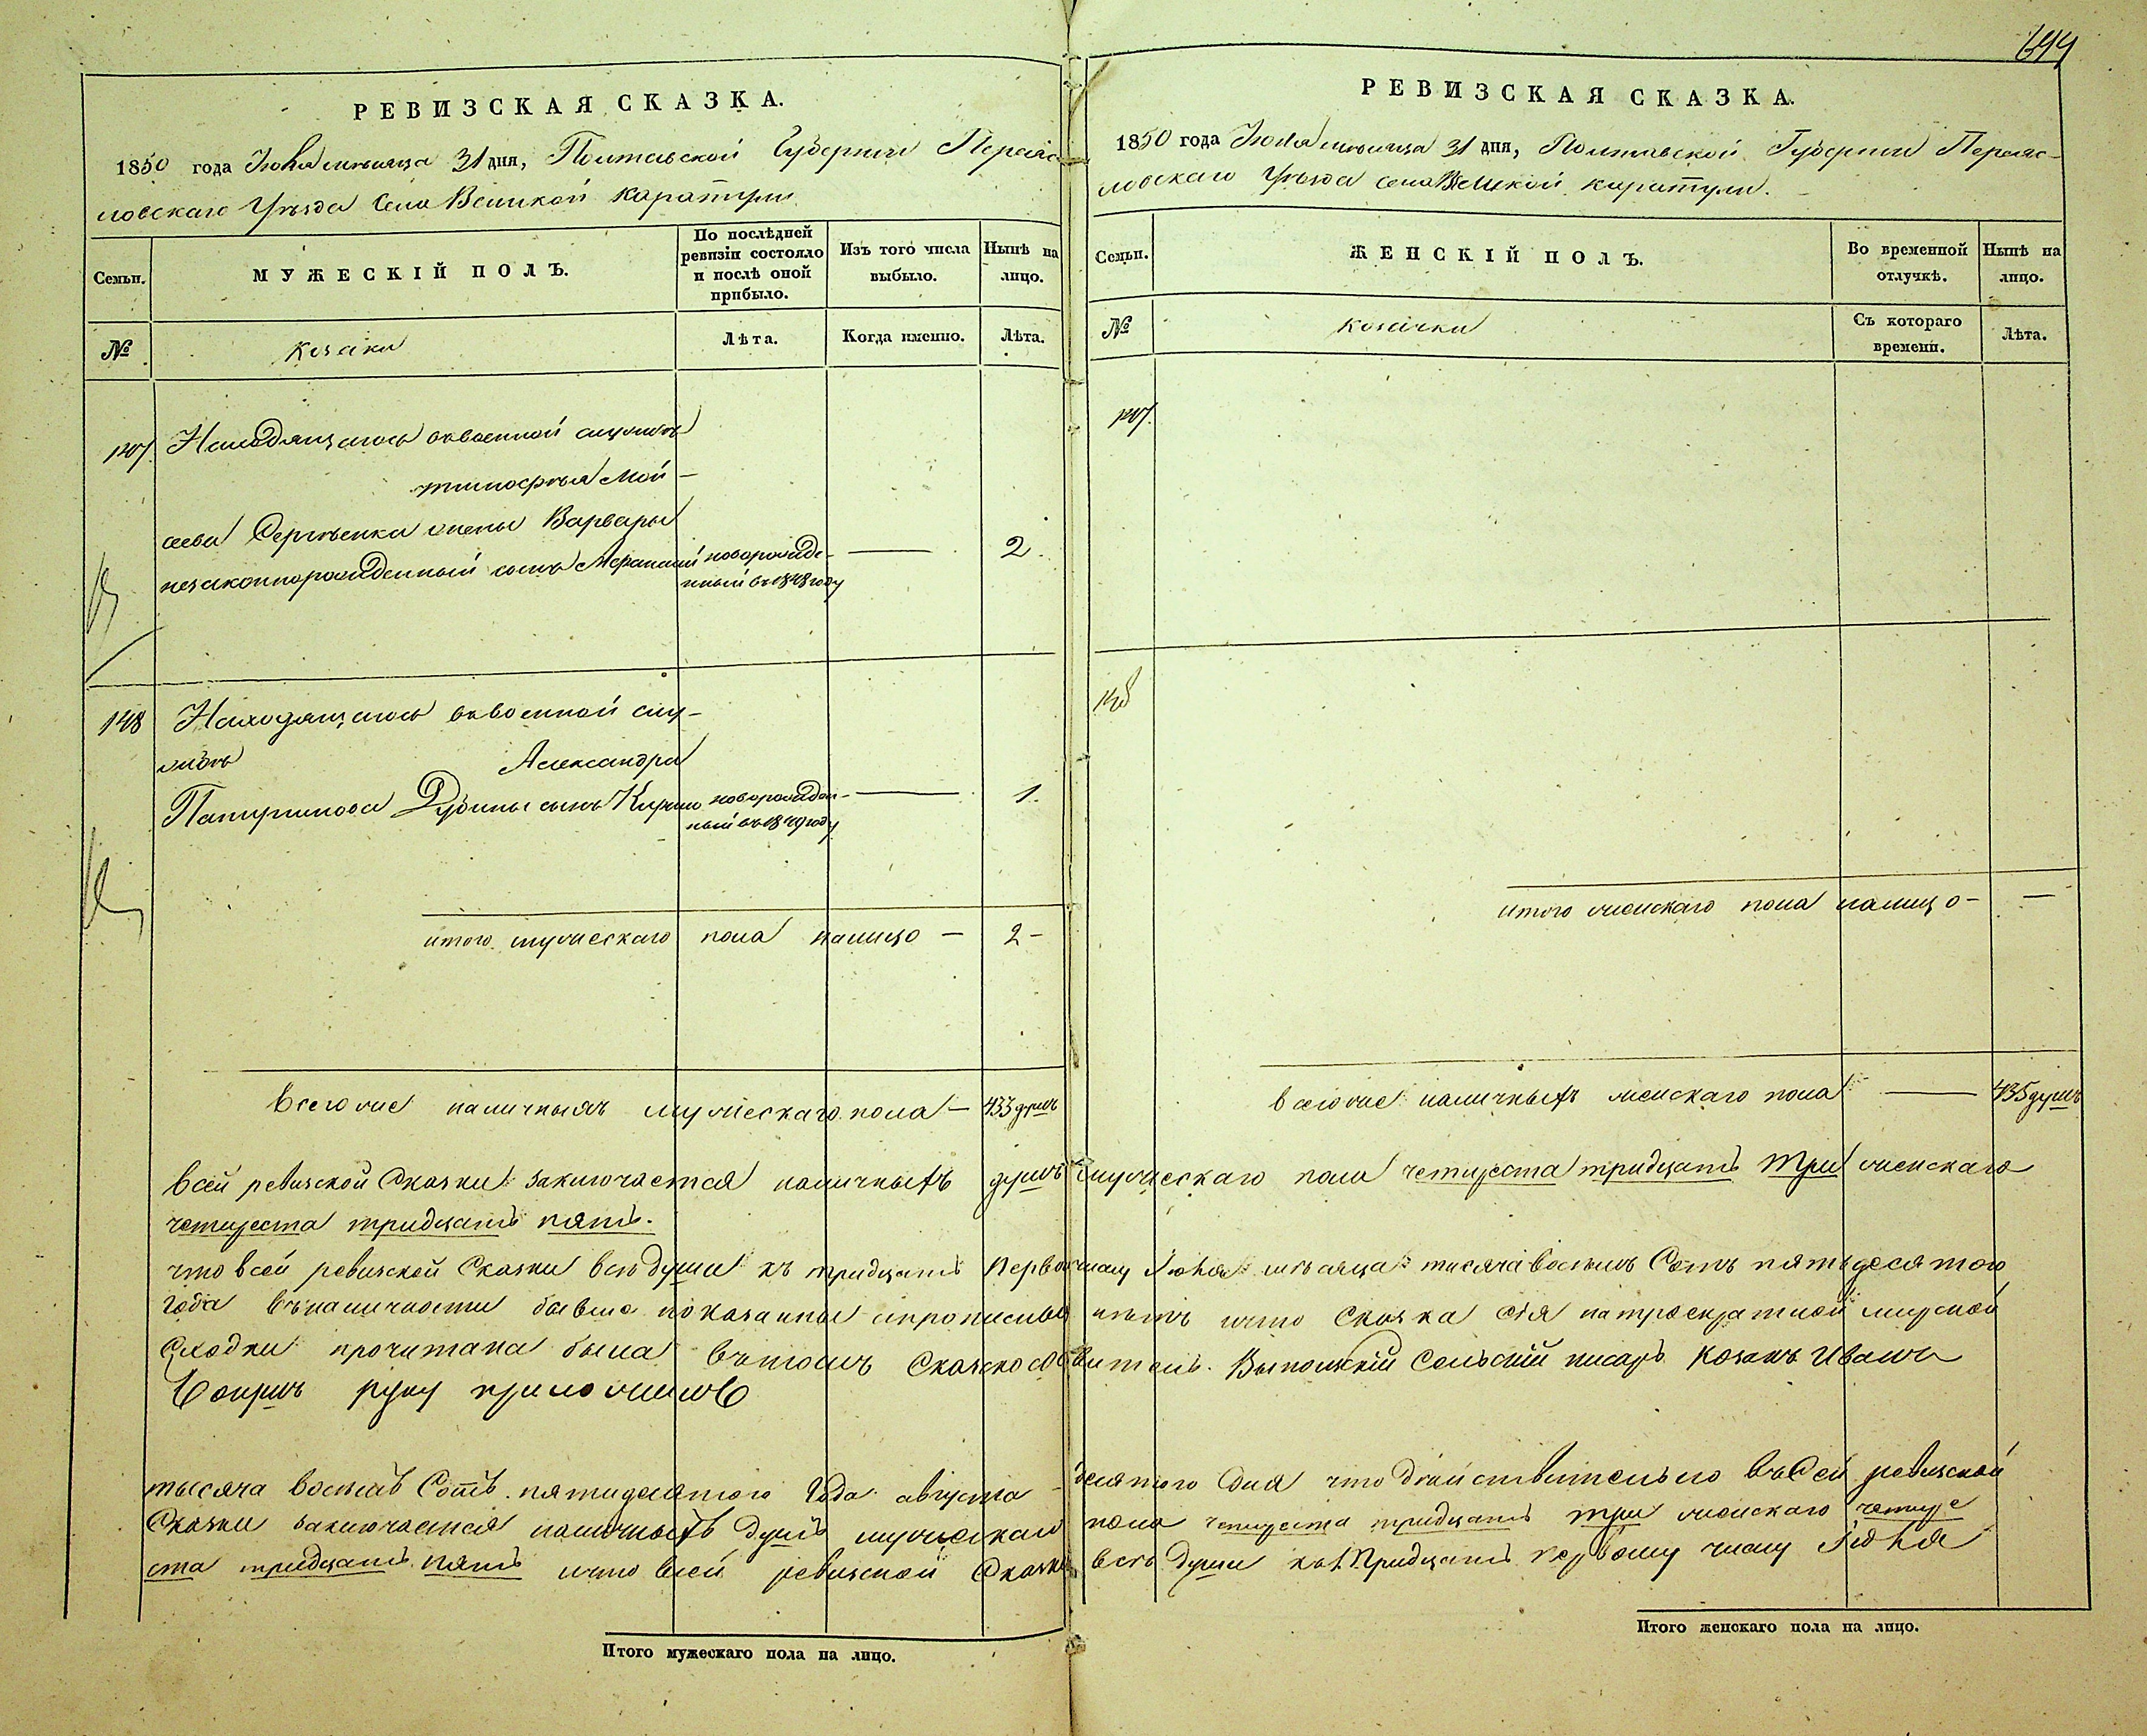 699
РЕВИЗСКАЯ СКАЗКА.
1850 года Июля мѣсяца 31 дня, Полтавской Губерніи Переяс
ловскаго Уѣзда Села Великой Каратули
Семьи.
МУЖЕСКІЙ ПОЛЪ.
По послѣдней ревизіи состояло и послѣ оной прибыло.
Изъ того числа выбыло.
Нынѣ на лицо.
№
козаки
Лѣта.
Когда именно.
Лѣта.
147.
Находящагося въ военной службѣ
тимофѣя Мой-
сеева Сергѣенка жены Варвары
незаконнорожденный сынъ
новорожде-
нный въ 1848 году
2.
148
Находящагося въ военной слу-
жбѣ Александра
Дубины сынъ
новорожден-
ный въ 1849 году
1.
итого мужескаго пола налицо — 2 —
Всего же наличныхъ мужескаго пола — 433 душъ
РЕВИЗСКАЯ СКАЗКА.
1850 года Июля мѣсяца 31 дня, Полтавской Губерніи Переяс-
ловскаго Уѣзда села Великой каратули.
Семьи.
ЖЕНСКІЙ ПОЛЪ.
Во временной отлучкѣ.
Нынѣ на лицо.
№
козачки
Съ котораго времени.
Лѣта.
147.
148
итого женскаго пола налицо — —
всего же наличныхъ женскаго пола — 435 душъ
всей ревизской Сказки заключается наличныхъ душъ мужескаго пола четыреста тридцать три женскаго
четыреста тридцать пять.
что всей ревизской Сказки всѣ души къ тридцать Первому числу Іюля мѣсяца тысяча восемь Сотъ пятьдесятого
Года въ наличности бывшие показанны и прописных нѣтъ и что Сказка сія на троекратной мирской
Сходки прочитана была въ томъ Сельскій писарь Козакъ Иванъ
руку приложилъ
тысяча восемь Сотъ пятидесятого Года августа десятого Дня что дѣйствительно въ Сей ревизской
Сказки заключается наличныхъ Душъ мужескаго пола четыреста тридцать три женскаго четыре
ста тридцать пять и что всей ревизской Сказки всѣ души къ Тридцать первому числу Июля
Итого мужескаго пола на лицо.
Итого женскаго пола на лицо.